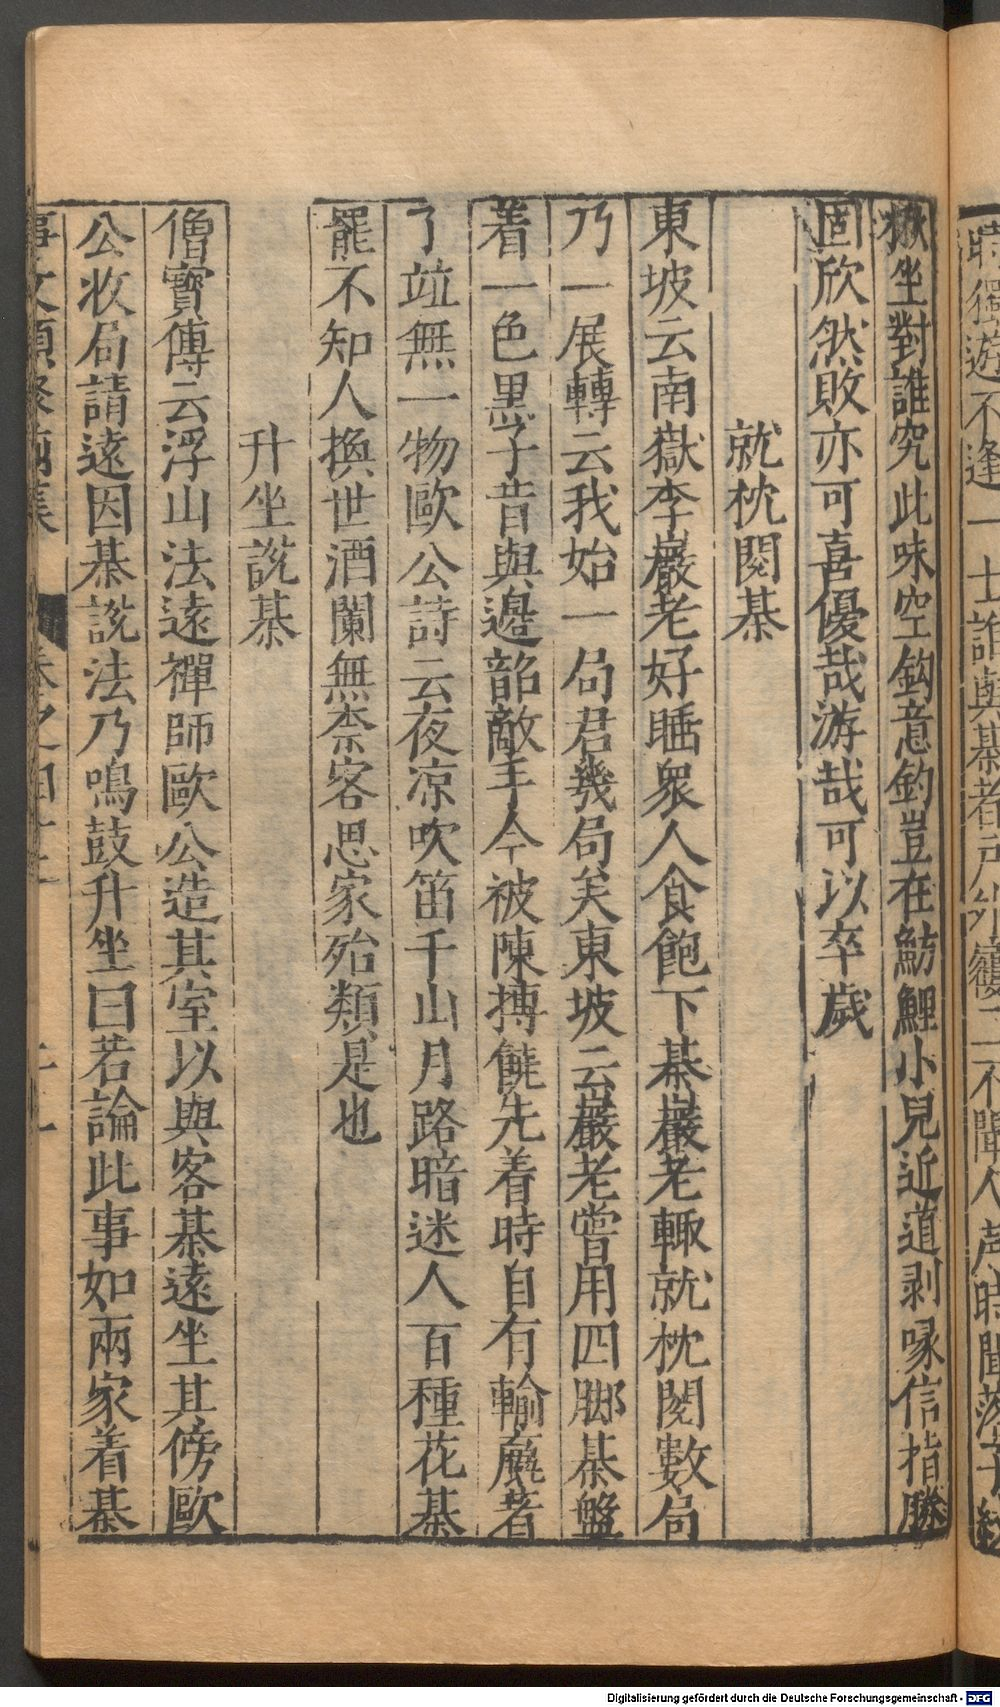 時獨遊不逢一士誰與棊者戶外屨二不聞人声時聞落子紋
枰坐對誰究此味空鈎意釣豈在魴鯉小兒近道剥啄信指勝
固欣然敗亦可喜優哉游哉可以卒歲
就枕閱棊
東坡云南嶽李巖老好睡衆人食飽下棊巖老輙就枕閱數局
乃一展轉云我始一局君幾局矣東坡云巖老嘗用四脚棊盤
着一色黒子昔與邉韶敵手今被陳摶饒先着時自有輸嬴著
了竝無一物歐公詩云夜凉吹笛千山月路暗迷人百種花棊
罷不知人換世酒闌無柰客思家殆類是也
升坐說棊
僧寶傳云浮山法遠禪師歐公造其室以與客棊遠坐其傍歐
公收局請遠因棊說法乃鳴鼓升坐曰若論此事如兩家着棊
事文類聚前集 卷之四十二
Digitalisierung gefördert durch die Deutsche Forschungsgemeinschaft - DFG